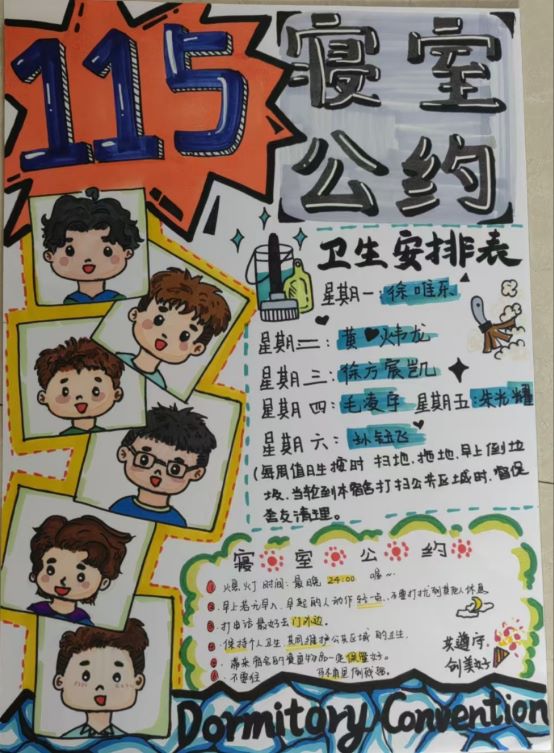 115
寝室
公约
卫生安排表
星期一:徐唯乐
星期二:黄 炜龙
星期三:徐方宸凯
星期四:毛凌宇 星期五:朱光耀
星期六:孙钰飞
(每周值日生按时扫地、拖地、早上倒垃
圾、当轮到本宿舍打扫公共区域时,督促
室友清理。
寝室公约
熄灯时间:最晚 24:00 喔~
早上若无早八,早起的人动作轻一点,不要打扰到其他人休息
打电话最好去门外边。
保持个人卫生 共同维护公共区域的卫生.
带来宿舍的贵重物品一定保管好。
不要
共遵守,
创美好
Dormitory Convention